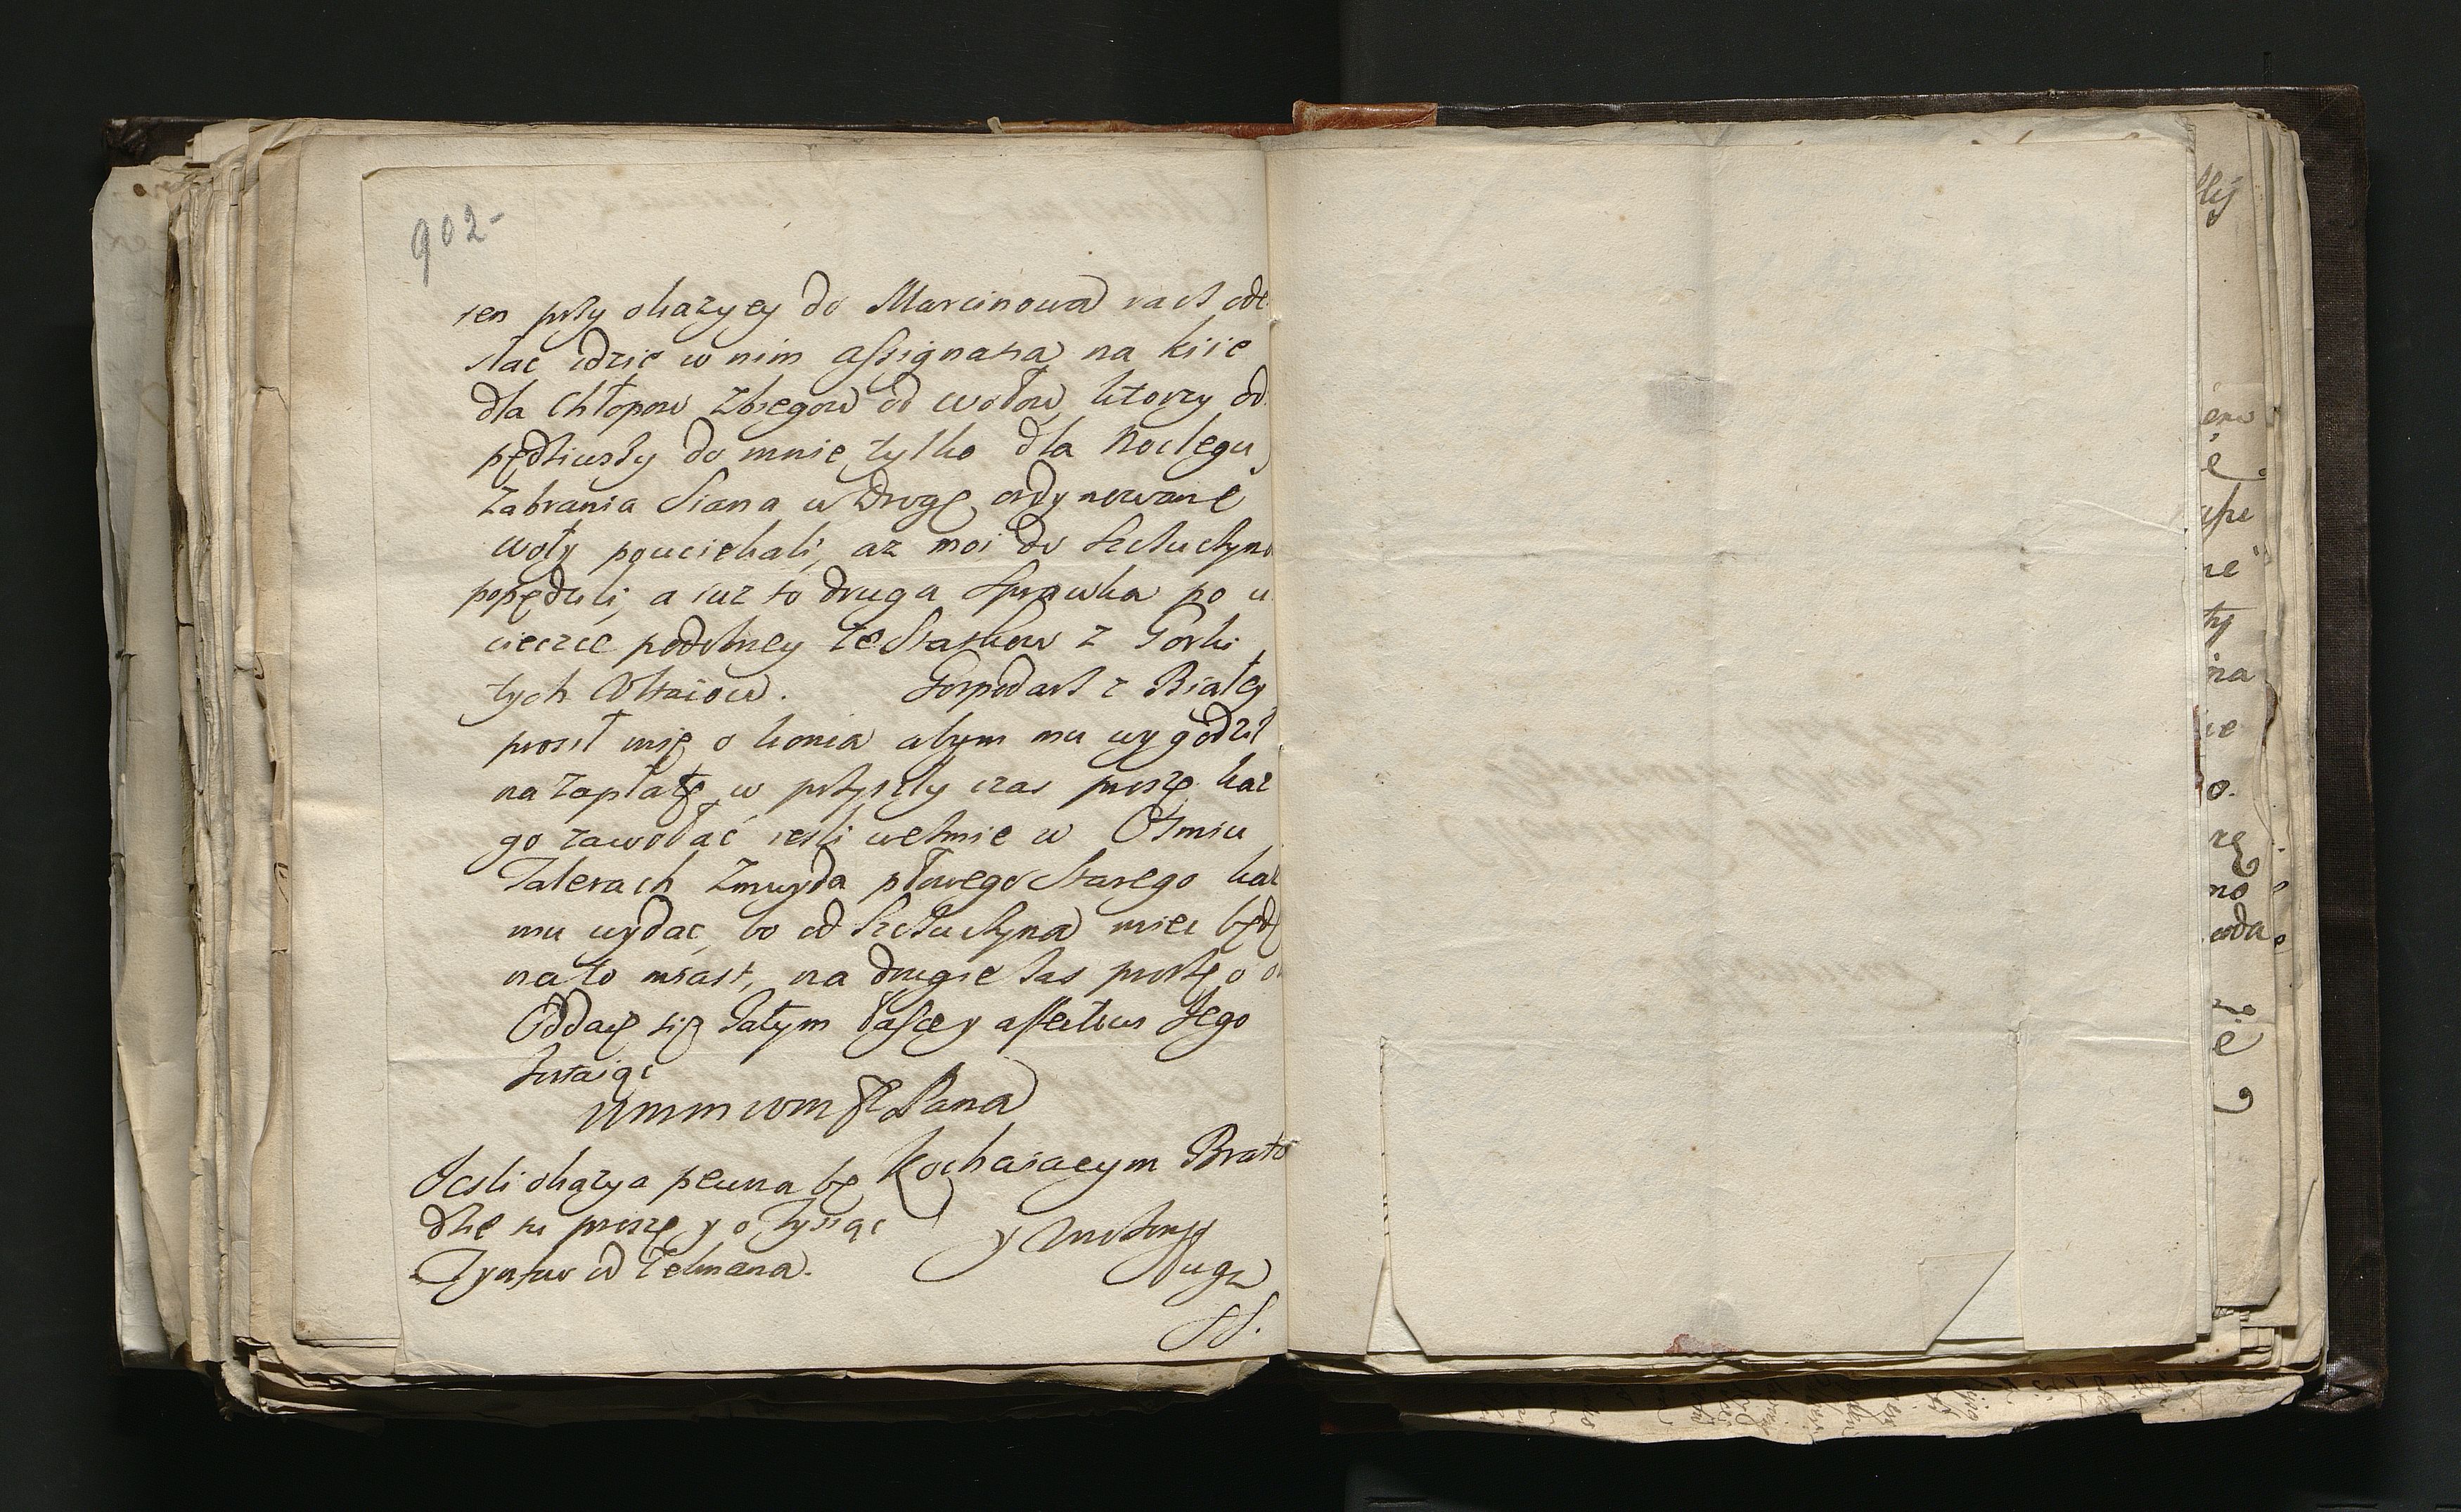 902-
ten przy okazyey do Marcinowa racz ode
słac idzie w nim assignata na kiie
dla Chłopow Zbiegow od wołow, ktorzy od
pędziwszy do mnie tylko dla Noclegu
Zabrania Siana w Drogę ordynowane
woły pouciekali, az moi do Szczuczyna
popędzili, a iuz to druga Sprawka po u
cieczce podobney ze Staskow z Gorki
tych Hultaiow. Gospodarz z Białey
prosił mię o konia abym mu wygodził
na Zapłatę w przyszły czas proszę kaz
go zawołać iesli wezmie w Osmiu
Talerach Zmuyda płowego Starego kaz
mu wydac, bo od Szczuczyna miec będę
na to miast, na drugie zas proszę o
Oddaię się Całym łascey affectow Jego
Zostaiąc
WMM WM Pana
Kochaiacym Brato
y Unizony
Sługą
Jesli okazya pewna bę
dzie to proszę y o tysiąc
Tynfow od Zelmana.